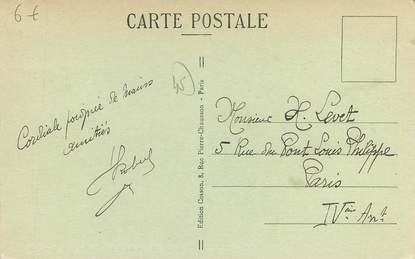 6 €
CARTE POSTALE
Cordiale poignée de mains
amitiés
Edition Cosson, 8, Rue Pierre-Chausson - Paris
Monsieur H. Levet
5 Rue du Pont Louis Philippe
Paris
IVème Arrt